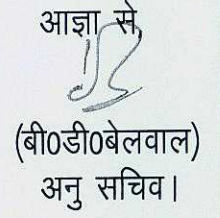 आज्ञा से,
(बी0डी0बेलवाल)
अनु सचिव।